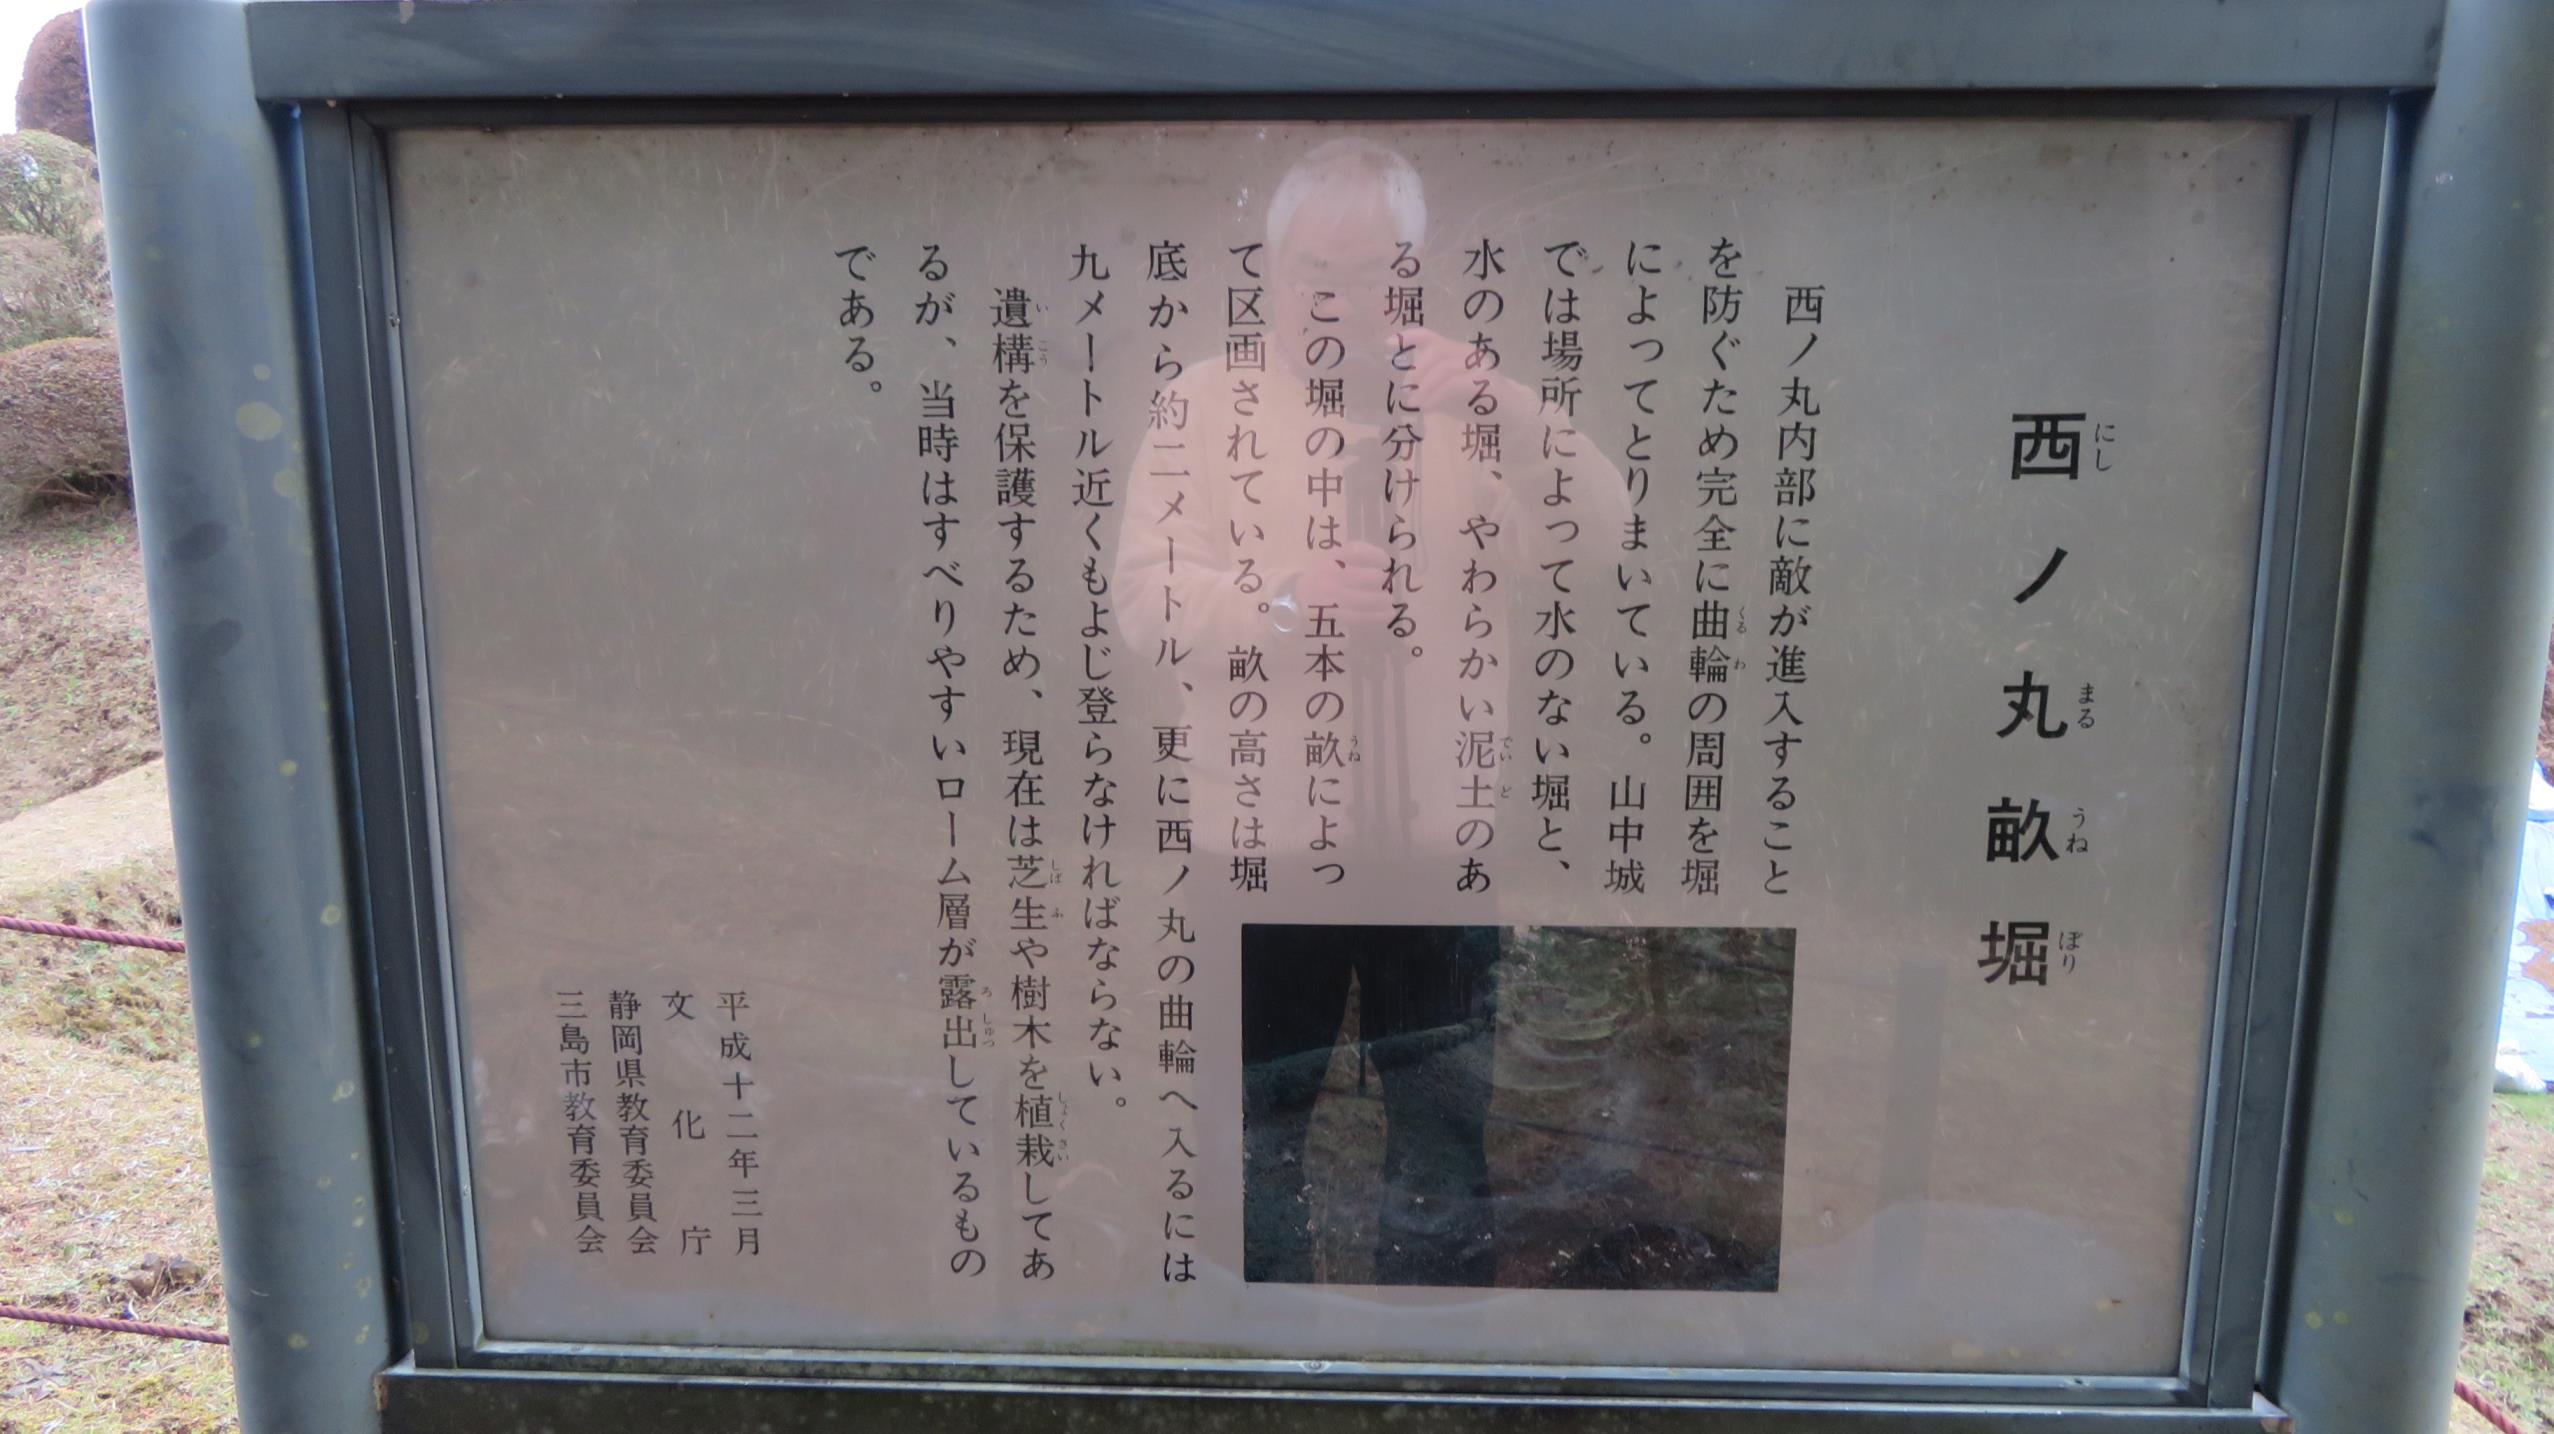 西ノ丸畝堀
にし まる うね ぼり
西ノ丸内部に敵が進入すること
を防ぐため完全に曲輪の周囲を堀
くるわ
によってとりまいている。山中城
では場所によって水のない堀と、
水のある堀、やわらかい泥土のあ
でいど
る堀とに分けられる。
この堀の中は、五本の畝によっ
うね
て区画されている。畝の高さは堀
底から約二メートル、更に西ノ丸の曲輪へ入るには
九メートル近くもよじ登らなければならない。
遺構を保護するため、現在は芝生や樹木を植栽してあ
いこう しばふ しょくさい
るが、当時はすべりやすいローム層が露出しているもの
ろしゅつ
である。
平成十二年三月
文化庁
静岡県教育委員会
三島市教育委員会